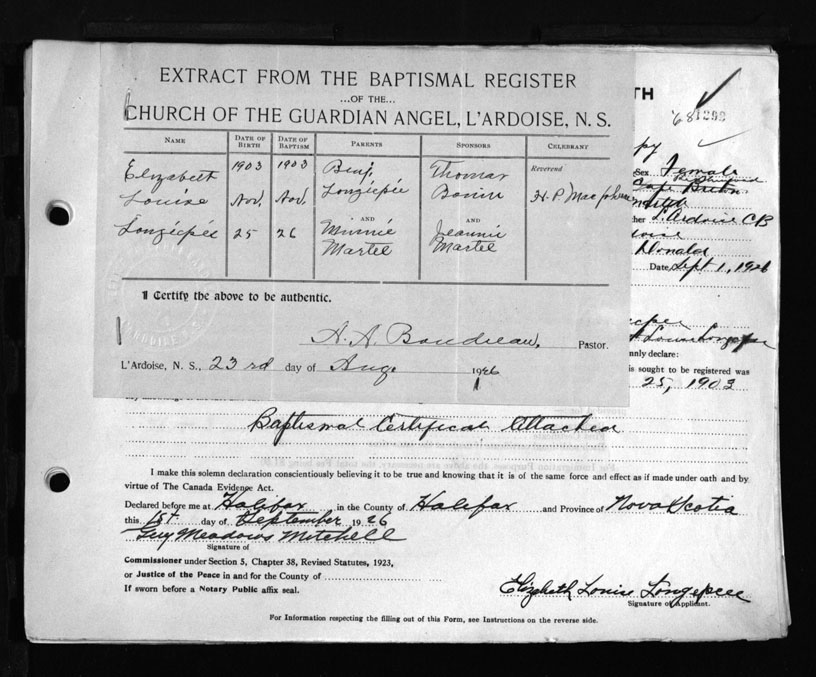 EXTRACT FROM THE BAPTISMAL REGISTER
...OF THE...
CHURCH OF THE GUARDIAN ANGEL, L'ARDOISE, N. S.
NAME DATE OF BIRTH DATE OF BAPTISM PARENTS SPONSORS CELEBRANT
Elizabeth 1903 1903 Benj. Thomas Reverend
Louise Nov. Nov. Longépée H. P. MacPherson
AND AND
Longépée 25 26 Minnie Jeannie
Martel Martel
I Certify the above to be authentic.
A. A. Boudreau, Pastor.
L'Ardoise, N. S., 23rd day of Aug 1926
TH
Sex Female
Cape Breton
L'Ardoise CB
Donald
Date Sept 1, 1926
nnly declare:
is sought to be registered was
25, 1903
Baptismal Certificate Attached
I make this solemn declaration conscientiously believing it to be true and knowing that it is of the same force and effect as if made under oath and by
virtue of The Canada Evidence Act.
Declared before me at Halifax in the County of Halifax and Province of Nova Scotia
this 1st day of September 1926
Guy Meadows Mitchell
Signature of
Commissioner under Section 5, Chapter 38, Revised Statutes, 1923,
or Justice of the Peace in and for the County of
If sworn before a Notary Public affix seal.
Elizabeth Louise Longepee
Signature of Applicant.
For Information respecting the filling out of this Form, see Instructions on the reverse side.